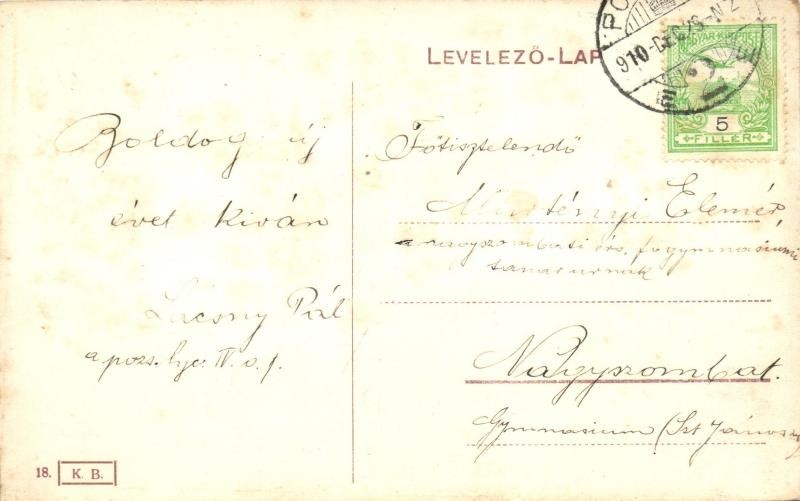 LEVELEZŐ-LAP
910-DEC
MAGYAR KIR. POSTA
5
FILLÉR
Boldog új
évet kíván
Pál
a pozs. lyc. IV. o. t.
Főtisztelendő
Elemér,
a nagyszombati érs. főgymnasiumi
tanár urnak
Nagyszombat.
Gymnasium (Szt János
18. K. B.